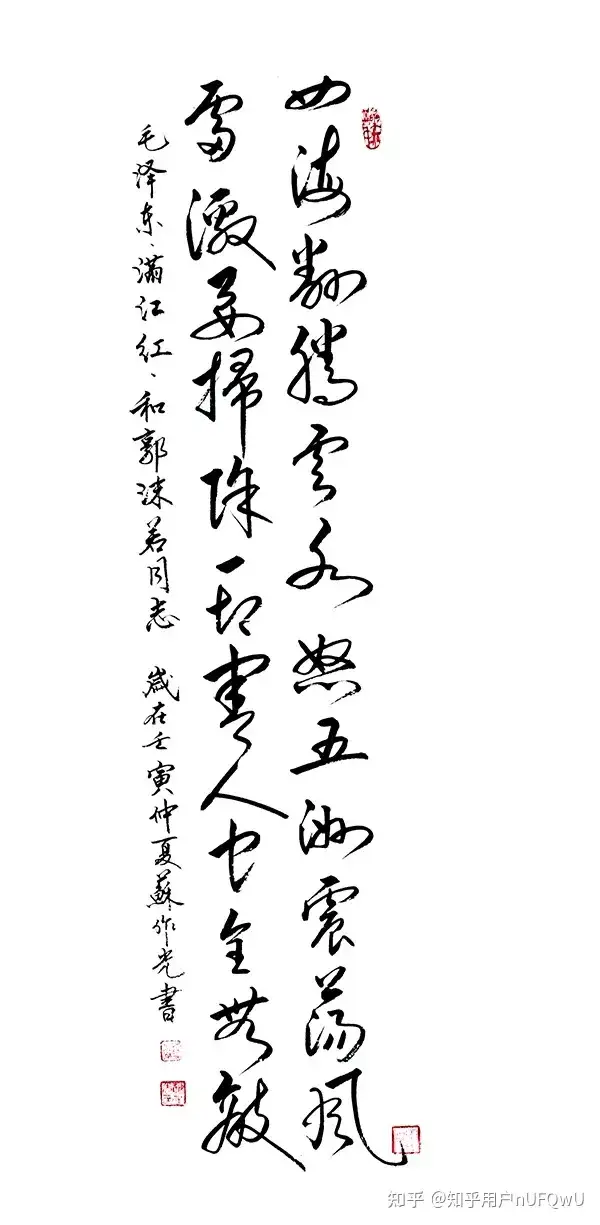 四海翻腾云水怒五洲震荡风
雷激要掃除一切害人虫全無敵
毛泽东、满江红、和郭沫若同志 歲在壬寅仲夏蘇作光書
知乎 @知乎用户nUFQwU